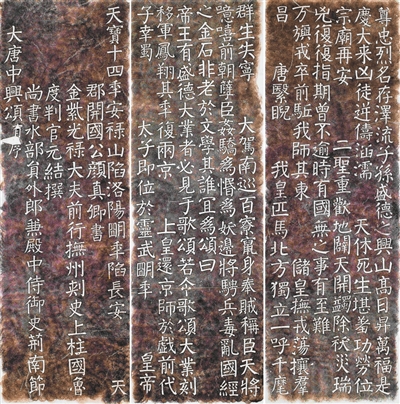 大唐中興頌有序
尚書水部員外郎兼殿中侍御史荊南節
度判官元結撰
金紫光祿大夫前行撫州刺史上柱國魯
郡開國公顏真卿書
天寶十四季安祿山陷洛陽明季陷長安 天
子幸蜀 太子即位於靈武明季 皇帝
移軍鳳翔其季復兩京 上皇還京師於戲前代
帝王有盛德大業者必見于歌頌若今歌頌大業刻
之金石非老於文學其誰宜為頌曰
噫嘻前朝孽臣姦驕為惛為妖邊將騁兵毒亂國經
群生失寧 大駕南巡百寮竄身奉賊稱臣天將
昌 唐繄睨 我皇匹馬北方獨立一呼千麾
萬旟我卒前驅我師其東 儲皇撫戎蕩攘群
兇復復指期曾不逾時有國無之事有至難
宗廟再安 二聖重歡地闢天開蠲除祅災瑞
慶大來凶徒逆儔涵濡 天休死生堪羞功勞位
尊忠烈名存澤流子孫盛德之興山高日昇萬福是